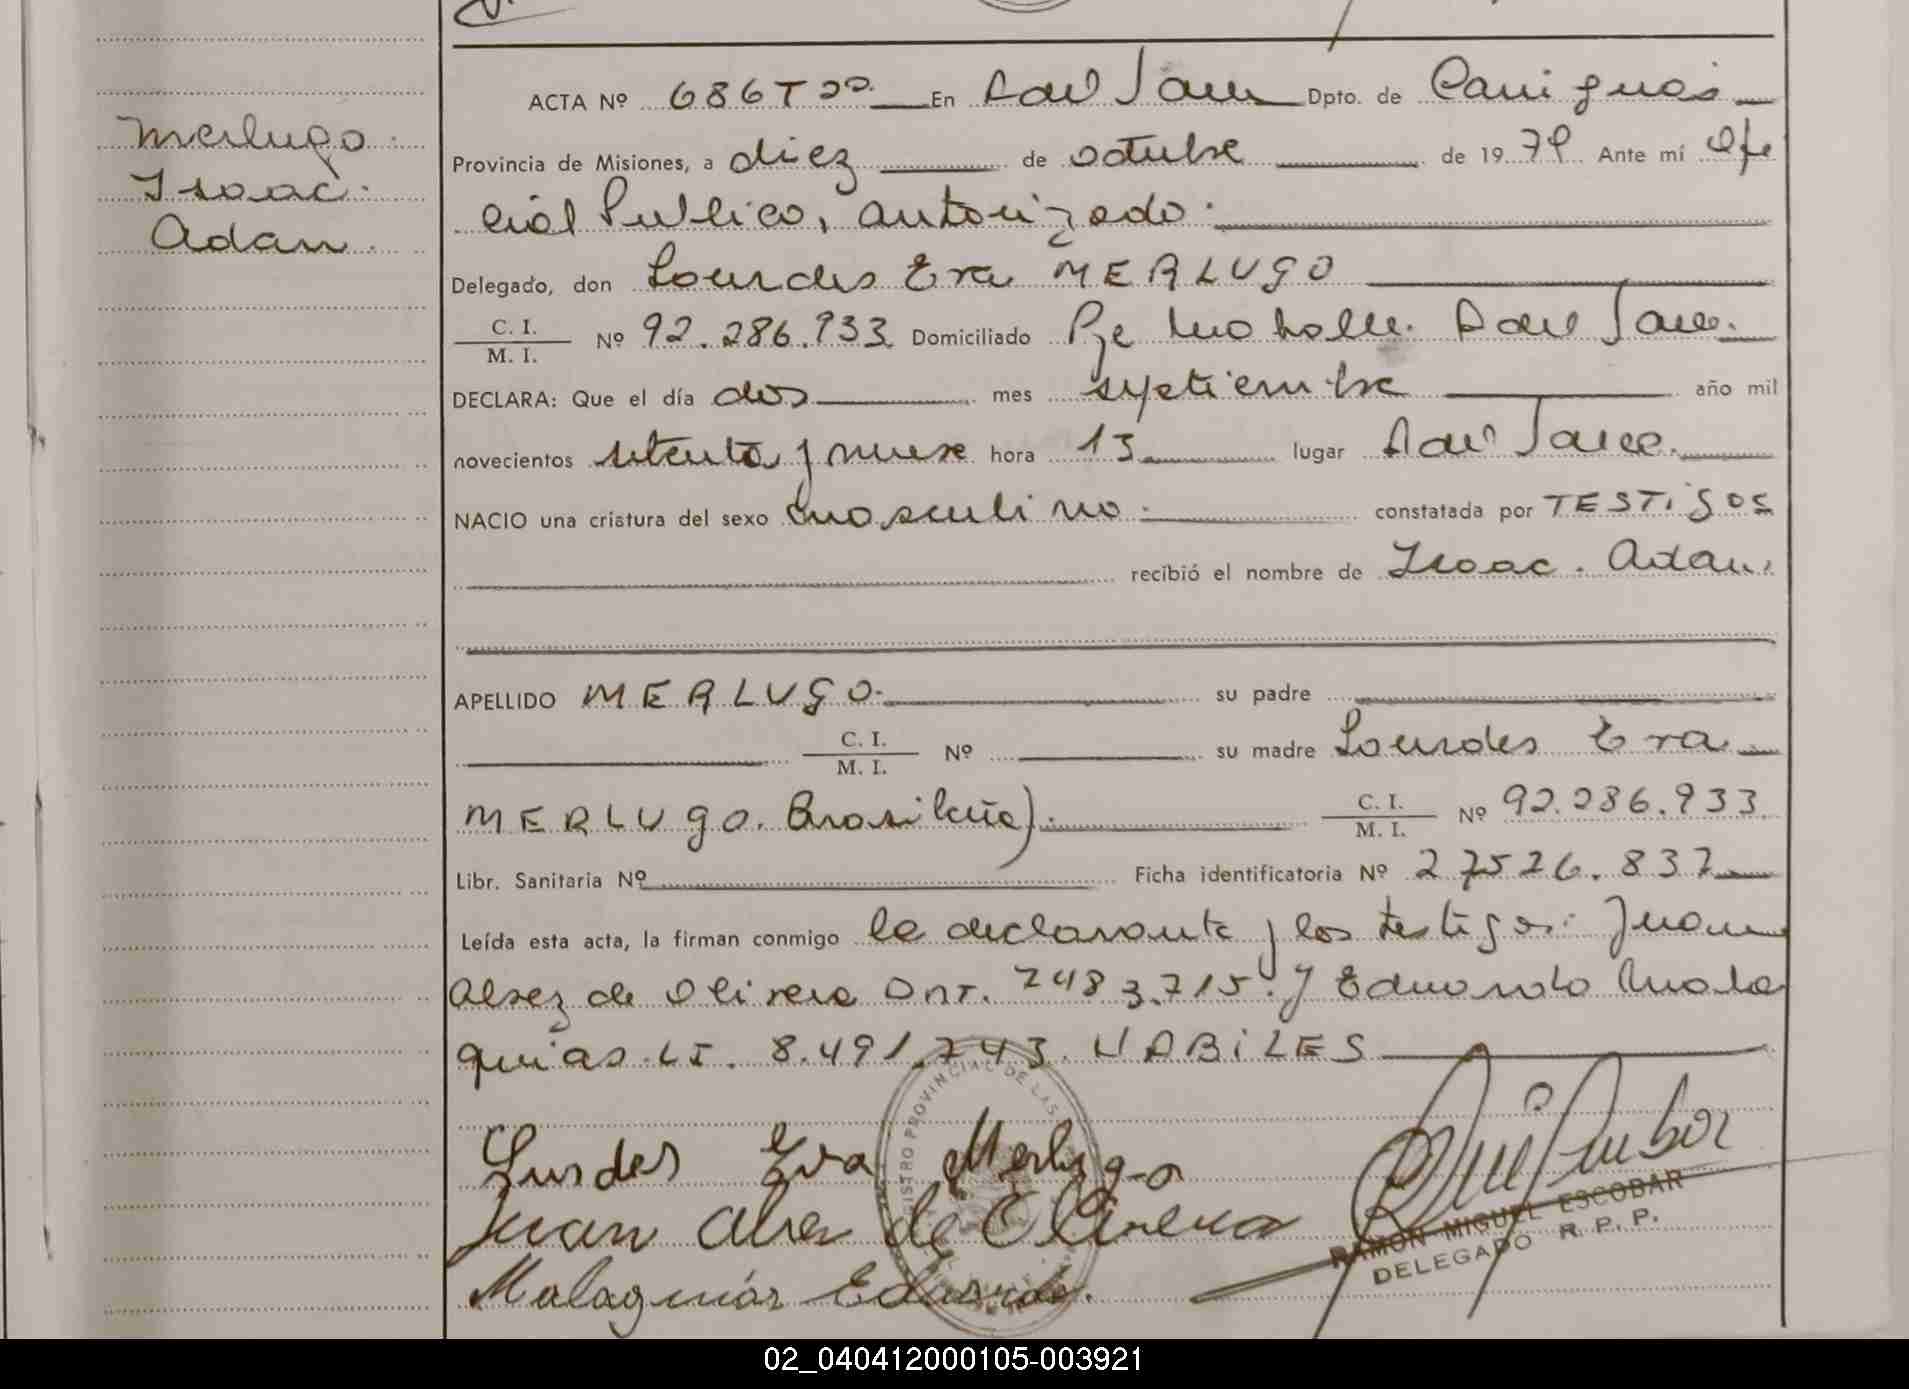 Merlugo
Isaac
Adan
ACTA Nº 686 Tº En Dpto. de Cainguás
Provincia de Misiones, a diez de octubre de 1979 Ante mí Ofi
cial Publico, autorizado.
Delegado, don Lourdes Eva MERLUGO
C. I.
M. I.
Nº 92.286.933 Domiciliado
DECLARA: Que el día dos mes septiembre año mil
novecientos setenta y nueve hora 13 lugar
NACIO una criatura del sexo masculino. constatada por TESTIGOS
recibió el nombre de Isaac. Adan.
APELLIDO MERLUGO. su padre
C. I.
M. I.
Nº su madre Lourdes Eva
MERLUGO. Brasileña).
C. I.
M. I.
Nº 92.286.933.
Libr. Sanitaria Nº Ficha identificatoria Nº 27526.837
Leída esta acta, la firman conmigo la declarante y los testigos: Juan
Alvez de Olivera DNI. 7483.715. y Eduardo Mala
quias. LI. 8.491.743. HABILES
REGISTRO PROVINCIAL DE LAS
Lurdes Eva Merlugo
Juan Alves de Oliveira
Malaquias Eduardo.
RAMON MIGUEL ESCOBAR
DELEGADO R. P. P.
02_040412000105-003921